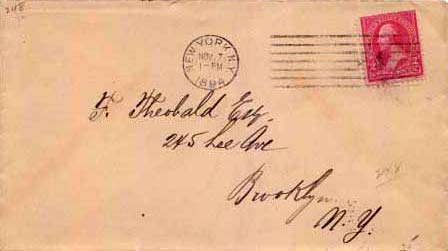 248
NEW YORK, N.Y.
NOV. 7
1-PM
1894
F. Theobald Esq.
245 Lee Ave
Brooklyn
N.Y.
248